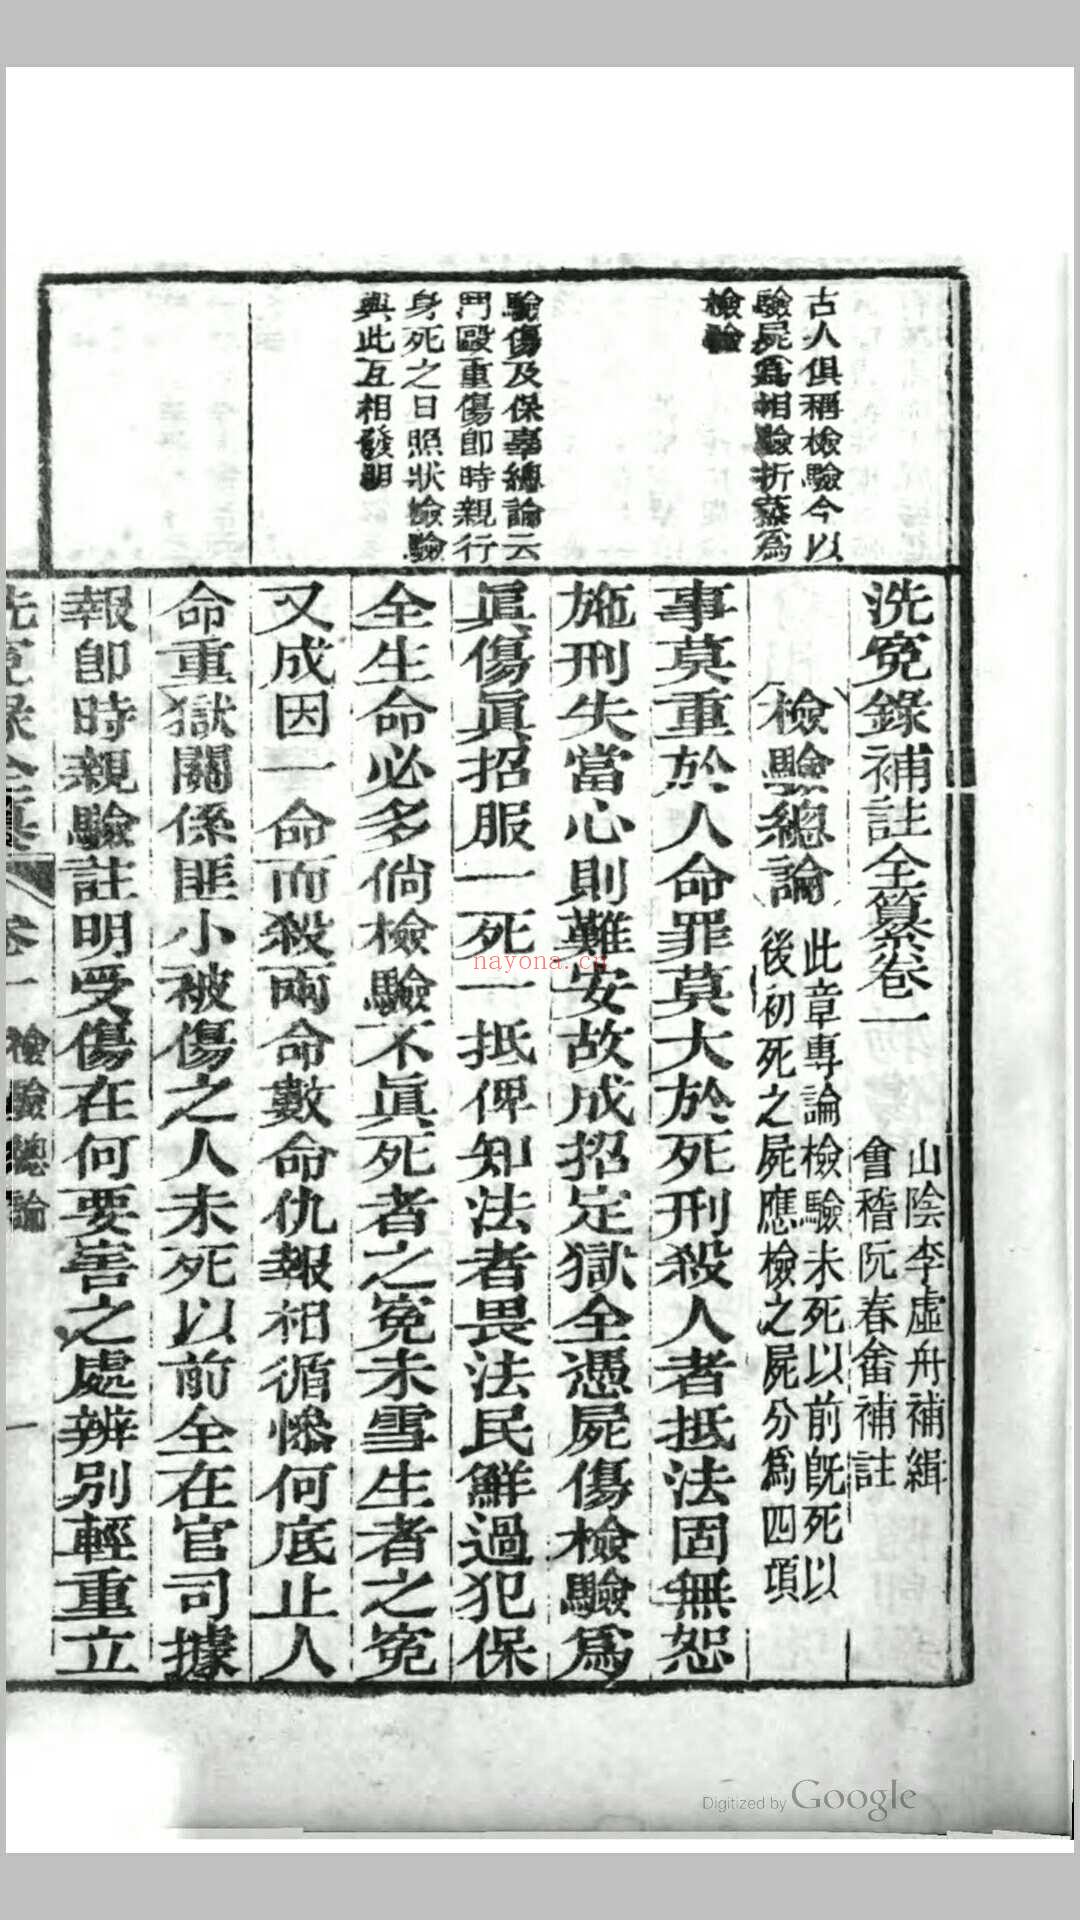 古人俱稱檢驗今以
驗屍爲相驗折蒸爲
檢驗
驗傷及保辜總論云
鬥毆重傷卽時親行
身死之日照狀檢驗
與此互相發明
洗寃錄補註全纂卷一
山陰李虛舟補緝
會稽阮春畬補註
檢驗總論
此章專論檢驗未死以前旣死以
後初死之屍應檢之屍分爲四項
事莫重於人命罪莫大於死刑殺人者抵法固無恕
施刑失當心則難安故成招定獄全憑屍傷檢驗爲
眞傷眞招服一死一抵俾知法者畏法民鮮過犯保
全生命必多倘檢驗不眞死者之寃未雪生者之寃
又成因一命而殺兩命數命仇報相循慘何底止人
命重獄關係匪小被傷之人未死以前全在官司據
報卽時親驗註明受傷在何要害之處辨別輕重立
洗寃錄全纂
卷一
檢驗總論
一
nayona.cn
Digitized by Google